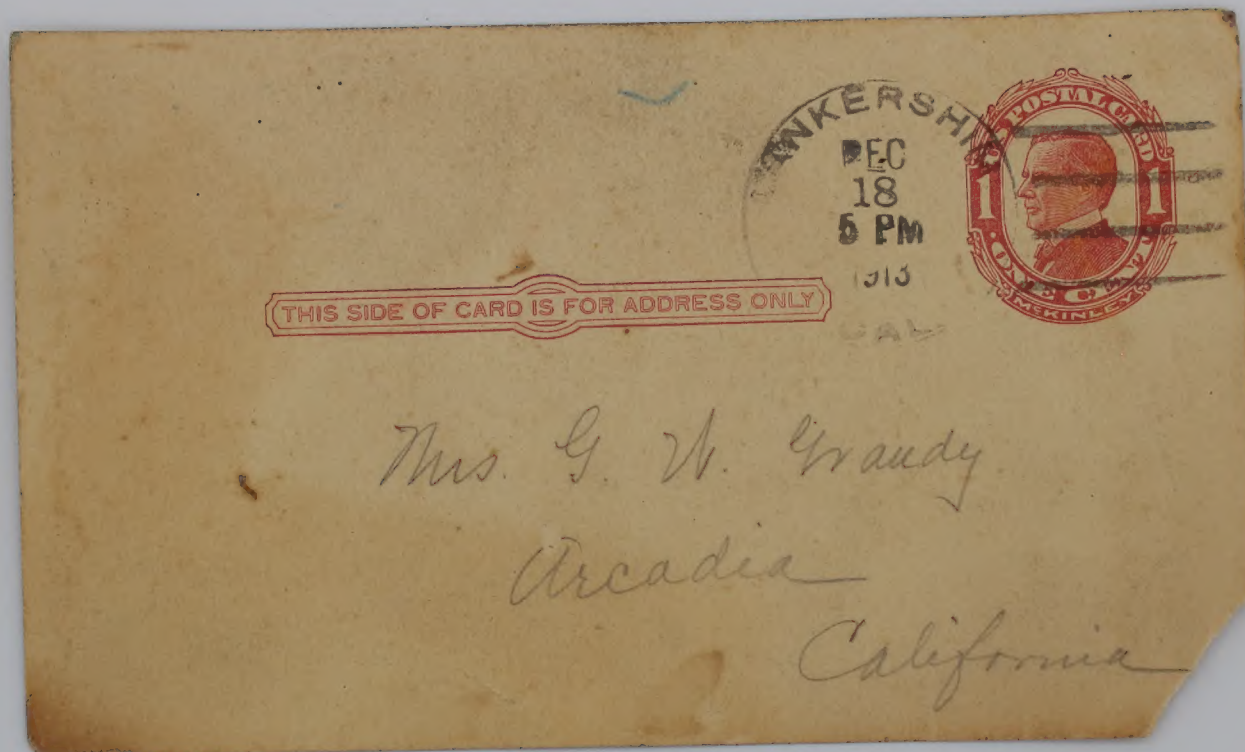 LANKERSHIM
DEC
18
5 PM
1913
CAL.
U.S. POSTAL CARD
1 1
· ONE CENT ·
McKINLEY
THIS SIDE OF CARD IS FOR ADDRESS ONLY
Mrs. G. W. Grandy
Arcadia
California